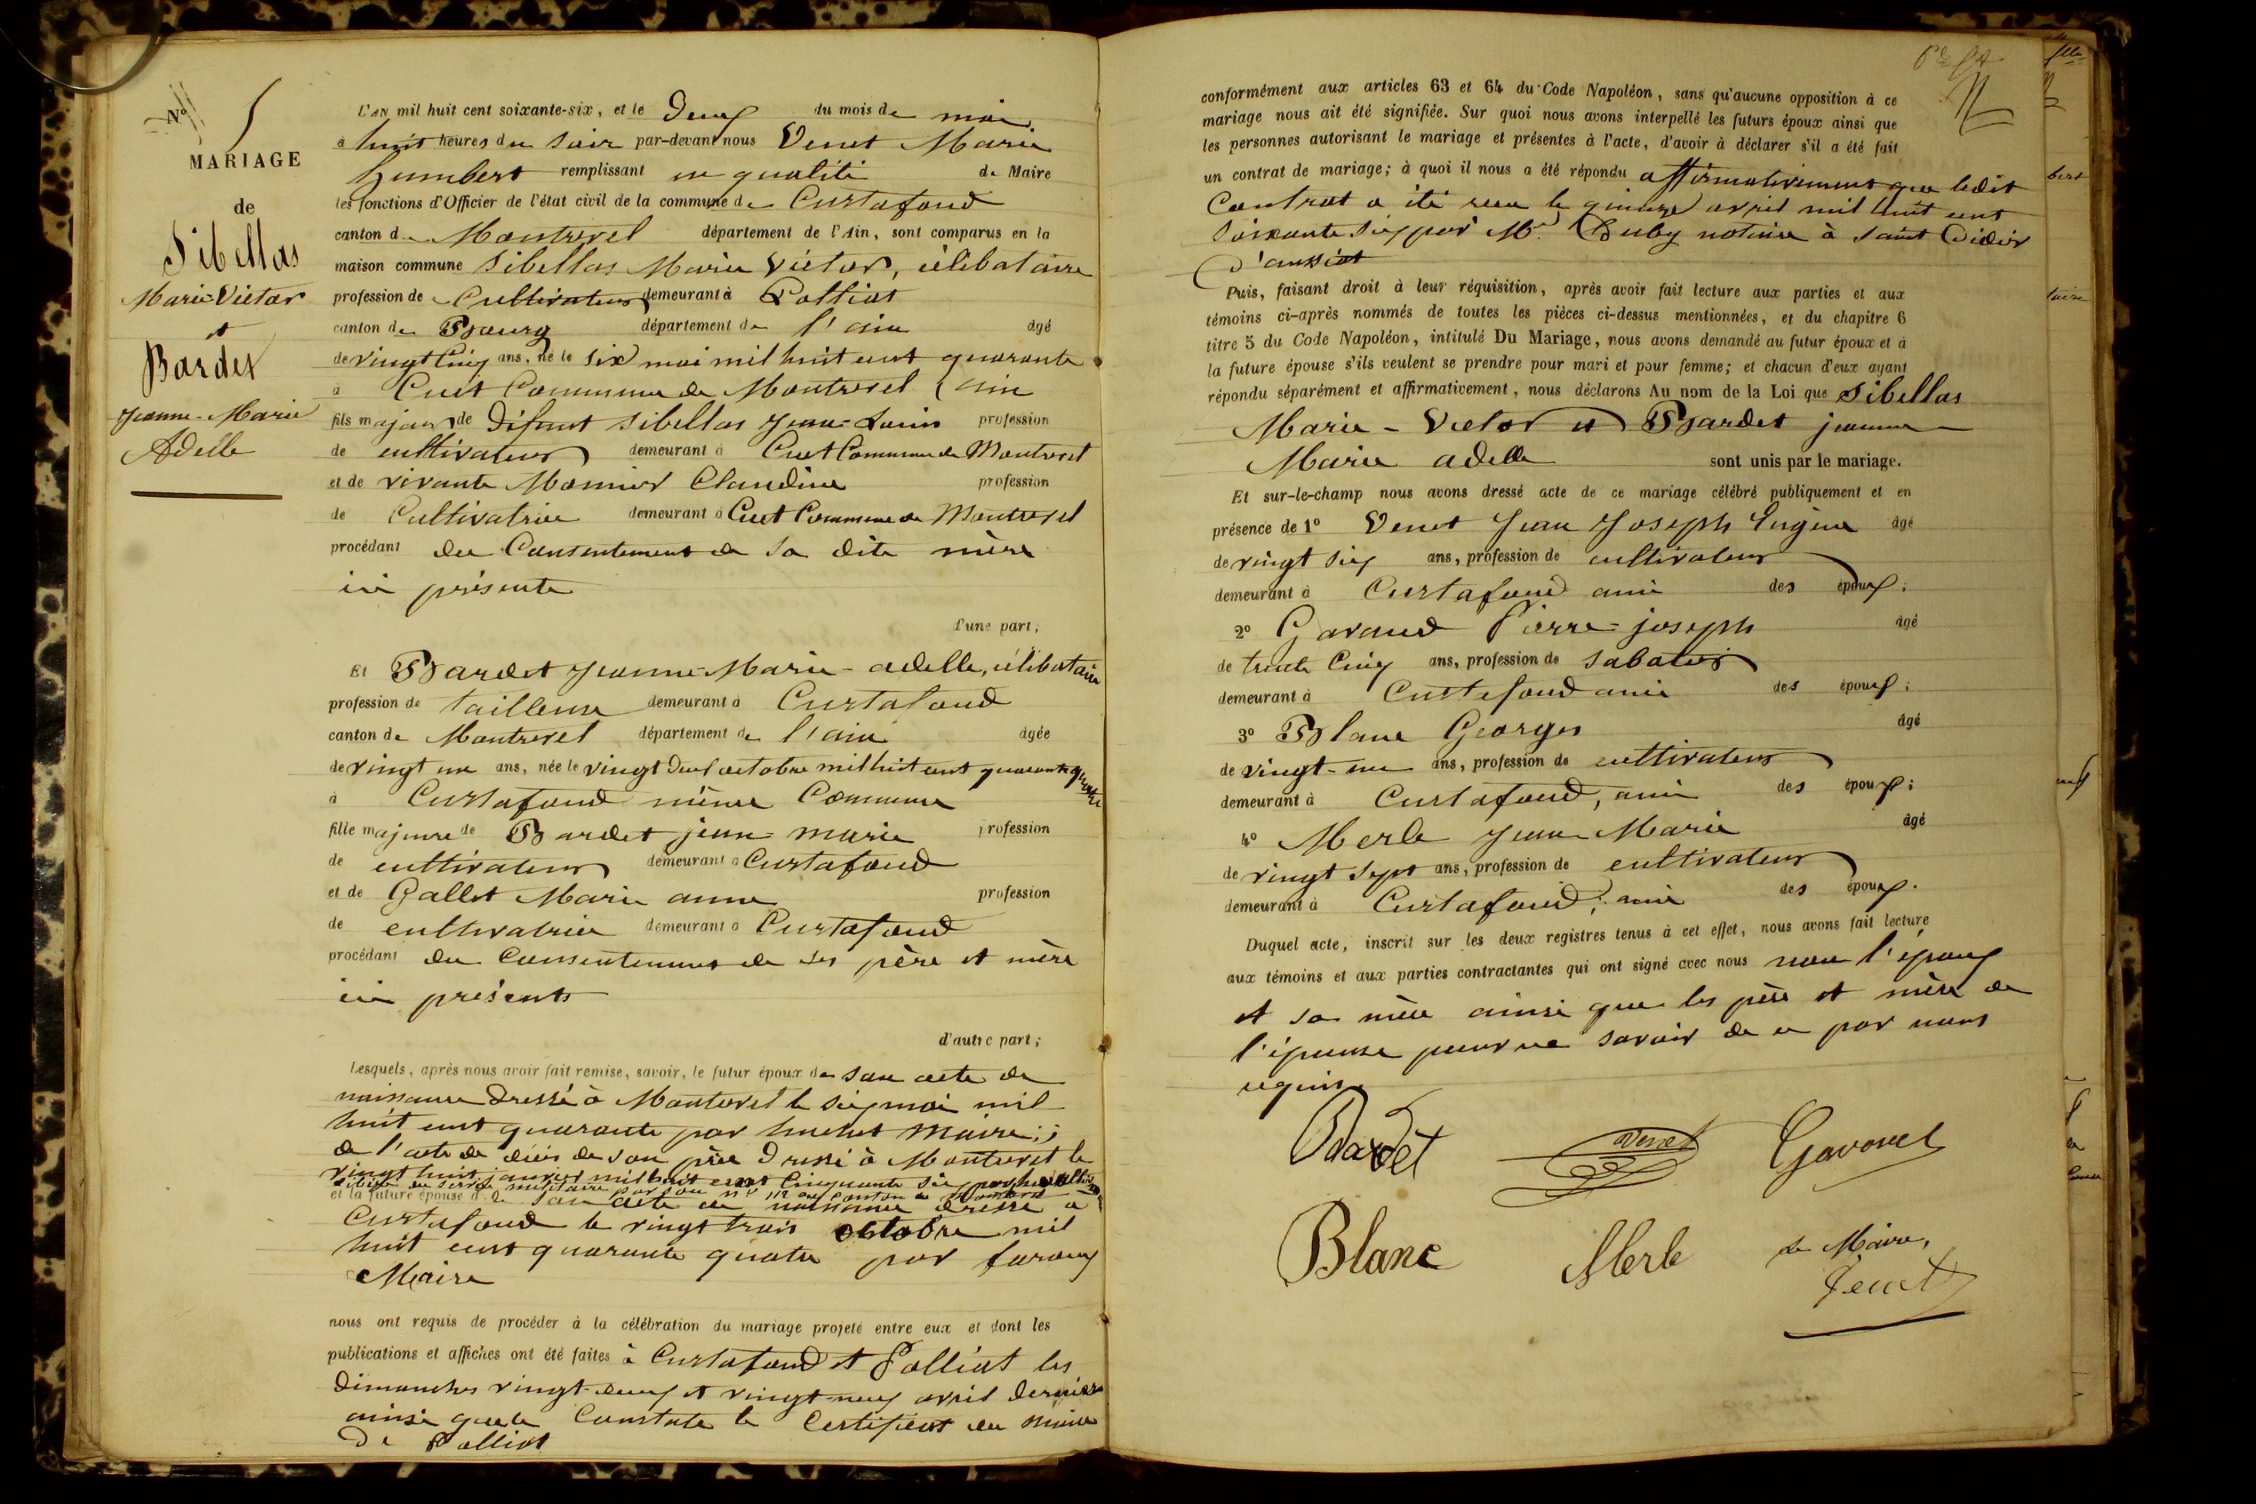 N°
5
MARIAGE
de
Sibellas
Marie Victor
et
Bardet
Jeanne-Marie
Adelle
L'AN mil huit cent soixante-six, et le deux du mois de mai
à huit heures du soir par-devant nous Venet Marie
humbert remplissant en qualité de Maire
les fonctions d'Officier de l'état civil de la commune de Curtafond
canton de Montrevel département de l'Ain, sont comparus en la
maison commune Sibellas Marie Victor, célibataire
profession de Cultivateur demeurant à Polliat
canton de Bourg département de l'ain âgé
de vingt Cinq ans, né le six mai mil huit cent quarante
à Cuet Commune de Montrevel (ain
fils majeur de défunt Sibellas Jean-Louis profession
de cultivateur demeurant à Cuet Commune de Montrevel
et de vivante Monnier Claudine profession
de Cultivatrice demeurant à Cuet Commune de Montrevel
procédant du Consentement de sa dite mère
ici présente
d'une part;
Et Bardet Jeanne-Marie-adelle, célibataire
profession de tailleuse demeurant à Curtafond
canton de Montrevel département de l'ain âgée
de vingt un ans, née le vingt deux octobre mil huit cent quarante quatre
à Curtafond même Commune
fille majeure de Bardet jean-marie profession
de cultivateur demeurant à Curtafond
et de Gallet Marie anne profession
de cultivatrice demeurant à Curtafond
procédant du Consentement de ses père et mère
ici présents
d'autre part;
Lesquels, après nous avoir fait remise, savoir, le futur époux de son acte de
naissance dressé à Montrevel le six mai mil
huit cent quarante par huchet Maire;
de l'acte de décès de son père dressé à Montrevel le
vingt huit janvier mil huit cent Cinquante six
libéré du service militaire par son n° 112 au canton de
et la future épouse de son acte de naissance dressé à
Curtafond le vingt trois octobre mil
huit cent quarante quatre par
Maire
nous ont requis de procéder à la célébration du mariage projeté entre eux et dont les
publications et affiches ont été faites à Curtafond et Polliat les
dimanches vingt-deux et vingt-neuf avril dernier
ainsi que le Constate le Certificat du maire
de Polliat
conformément aux articles 63 et 64 du Code Napoléon, sans qu'aucune opposition à ce
mariage nous ait été signifiée. Sur quoi nous avons interpellé les futurs époux ainsi que
les personnes autorisant le mariage et présentes à l'acte, d'avoir à déclarer s'il a été fait
un contrat de mariage; à quoi il nous a été répondu affirmativement que ledit
Contrat a été reçu le quinze avril mil huit cent
soixante six par Me Duby notaire à saint Didier
d'aussiat
Puis, faisant droit à leur réquisition, après avoir fait lecture aux parties et aux
témoins ci-après nommés de toutes les pièces ci-dessus mentionnées, et du chapitre 6
titre 5 du Code Napoléon, intitulé Du Mariage, nous avons demandé au futur époux et à
la future épouse s'ils veulent se prendre pour mari et pour femme; et chacun d'eux ayant
répondu séparément et affirmativement, nous déclarons Au nom de la Loi que Sibellas
Marie-Victor et Bardet jeanne-
Marie adelle sont unis par le mariage.
Et sur-le-champ nous avons dressé acte de ce mariage célébré publiquement et en
présence de 1° Venet Jean Joseph Eugène âgé
de vingt six ans, profession de cultivateur
demeurant à Curtafond ami des époux;
2° Gavand Pierre-joseph âgé
de trente Cinq ans, profession de sabotier
demeurant à Curtafond ami des époux;
3° Blanc Georges âgé
de vingt-un ans, profession de cultivateur
demeurant à Curtafond, ami des époux;
4° Merle Jean Marie âgé
de vingt sept ans, profession de cultivateur
demeurant à Curtafond; ami des époux.
Duquel acte, inscrit sur les deux registres tenus à cet effet, nous avons fait lecture
aux témoins et aux parties contractantes qui ont signé avec nous non l'époux
et sa mère ainsi que les père et mère de
l'épouse pour ne savoir de ce par nous
requis.
Bardet Venet
Blanc Merle Le Maire,
Venet